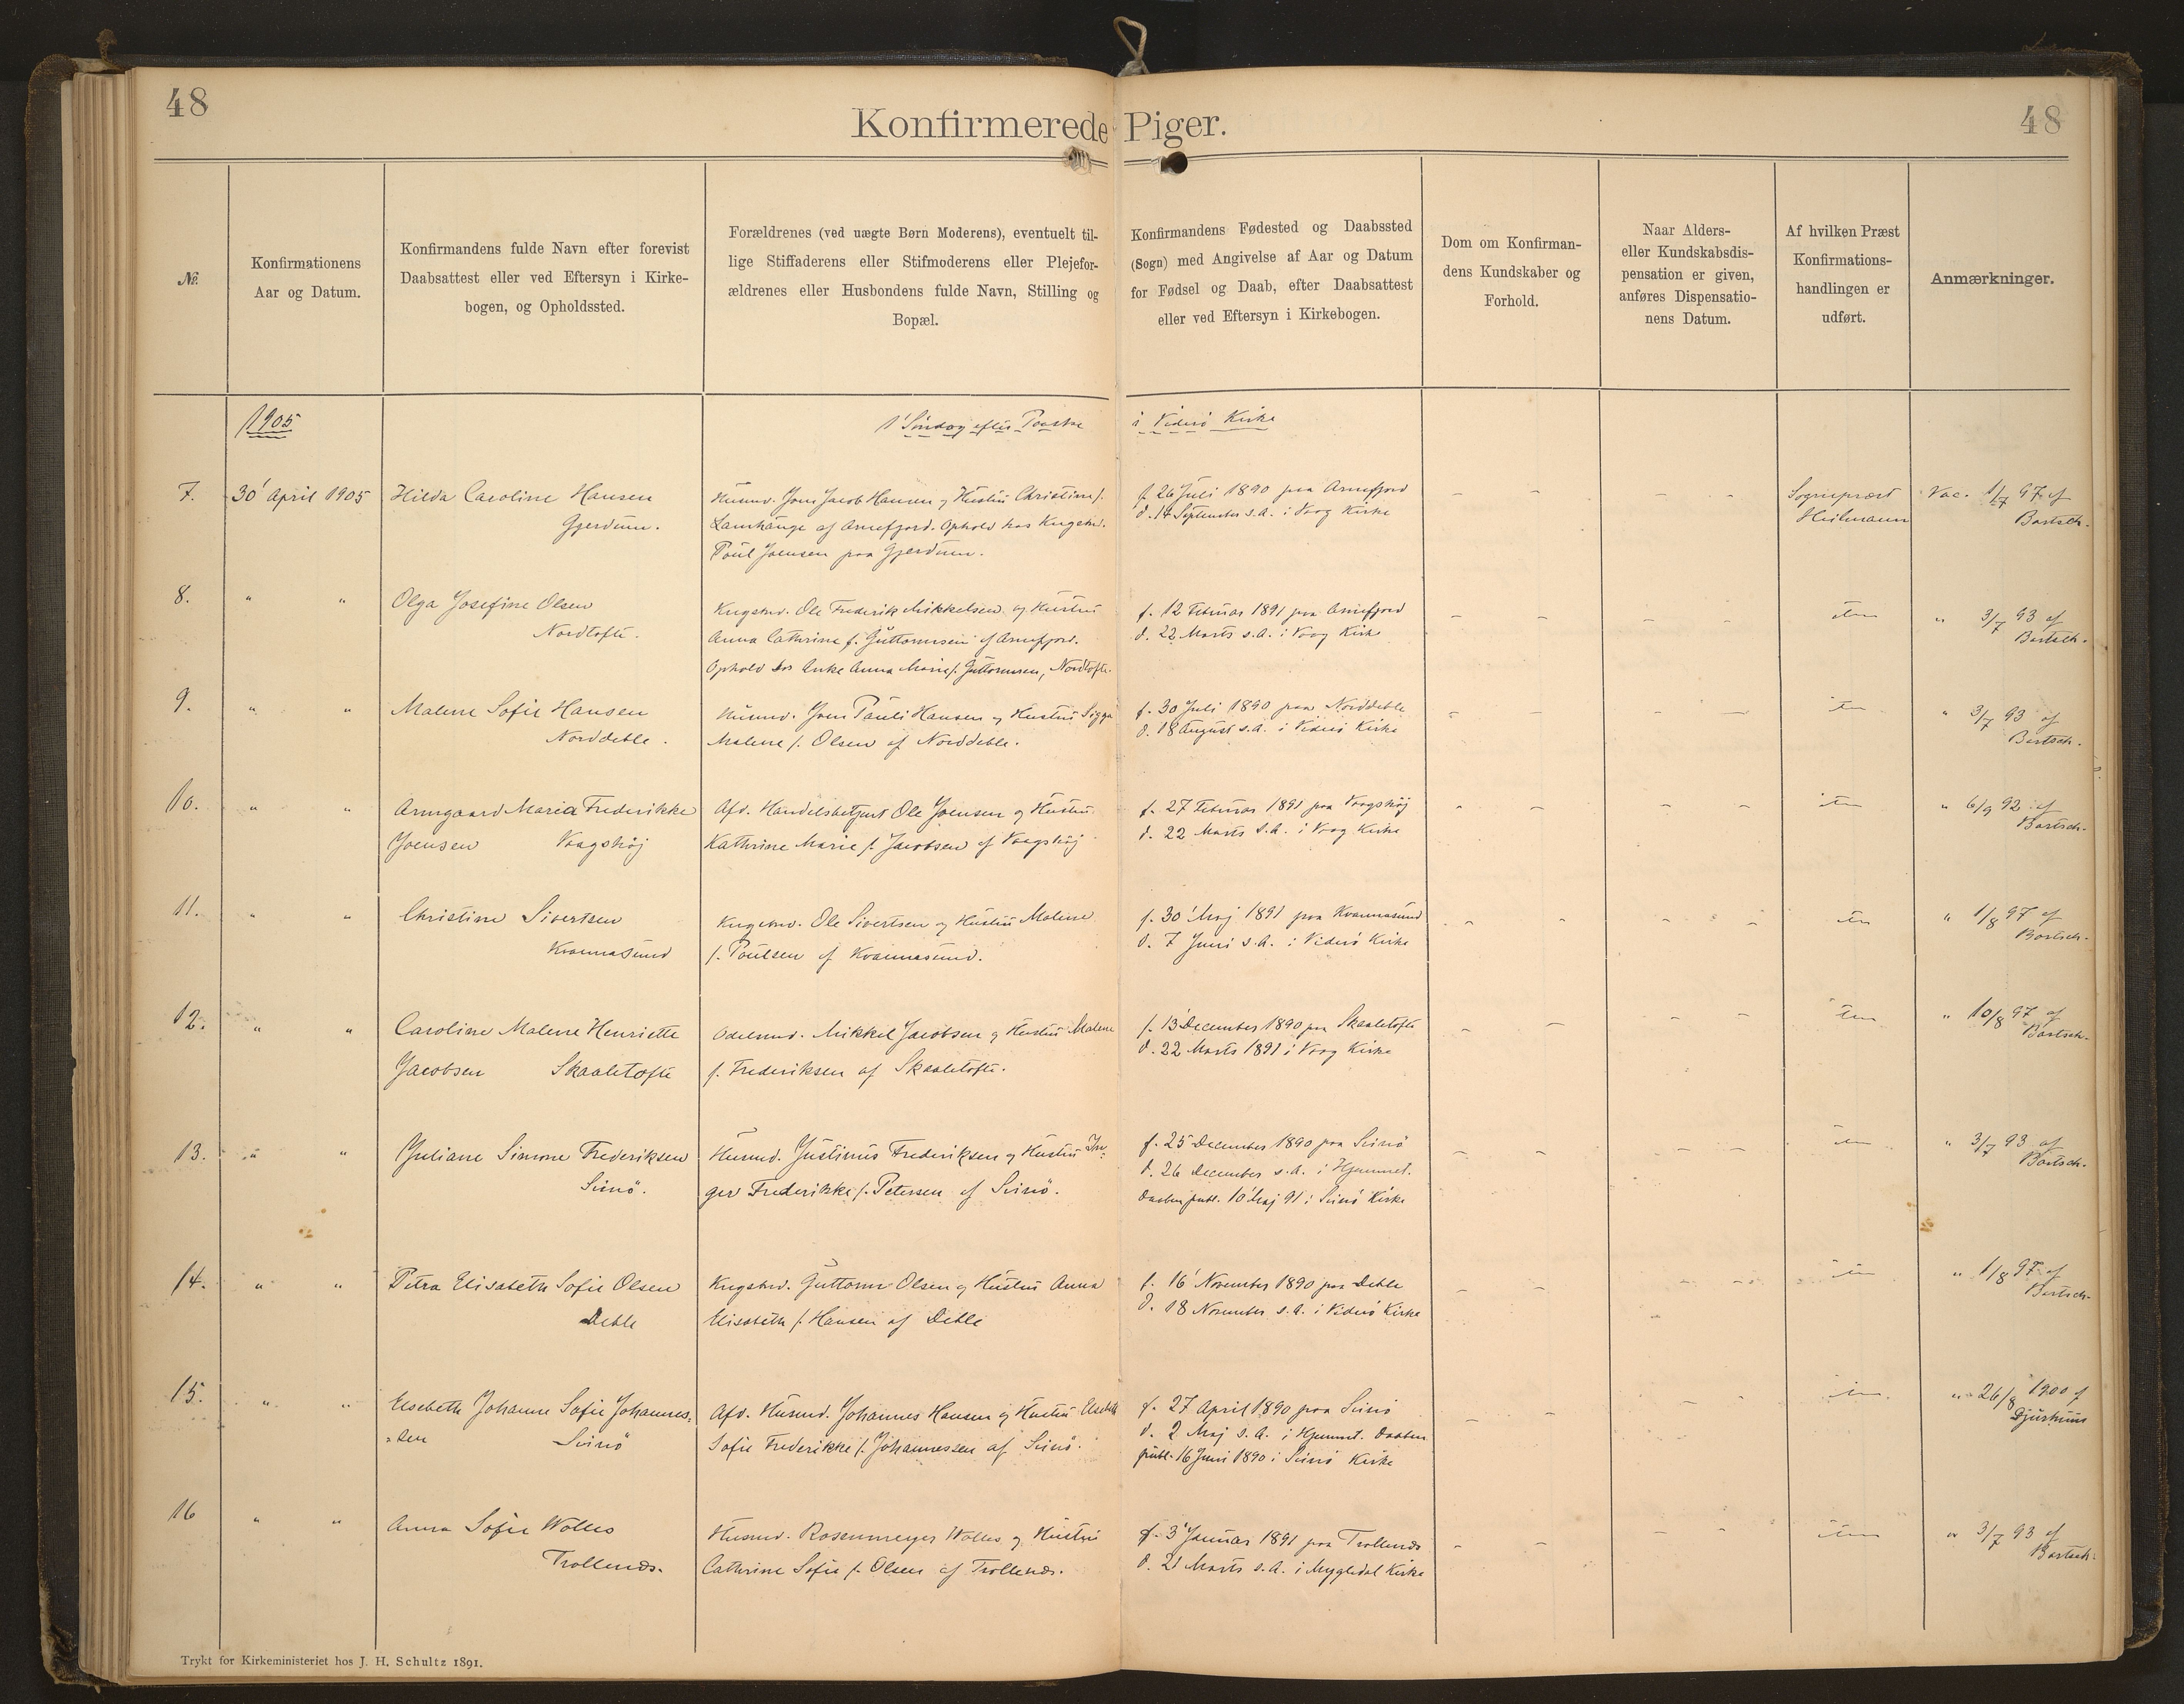 48
Konfirmerede Piger.
48
№
Konfirmationens
Aar og Datum.
Konfirmandens fulde Navn efter forevist
Daabsattest eller ved Eftersyn i Kirke-
bogen, og Opholdssted.
Forældrenes (ved uægte Børn Moderens), eventuelt til-
lige Stiffaderens eller Stifmoderens eller Plejefor-
ældrenes eller Husbondens fulde Navn, Stilling og
Bopæl.
Konfirmandens Fødested og Daabssted
(Sogn) med Angivelse af Aar og Datum
for Fødsel og Daab, efter Daabsattest
eller ved Eftersyn i Kirkebogen.
Dom om Konfirman-
dens Kundskaber og
Forhold.
Naar Alders-
eller Kundskabsdis-
pensation er given,
anføres Dispensatio-
nens Datum.
Af hvilken Præst
Konfirmations-
handlingen er
udført.
Anmærkninger.
1905
1' Søndag efter Paaske
i Viderø Kirke
7.
30' April 1905
Hilda Caroline Hansen
Gjerdum.
Husmd. Jons Jacob Hansen og Hustru Christine f.
Lamhauge af Arnefjord. Ophold hos Kngsmd.
Poul Joensen paa Gjerdum.
f. 26 Juli 1890 paa Arnefjord
d. 14 September s.A. i Vaag Kirke
- - - -
Sognepræst
Heilmann
Vac. 1/7 97 af
Bartsch.
8.
" "
Olga Josefine Olsen
Nordtofte.
Kngsmd. Ole Frederik Mikkelsen og Hustru
Anna Cathrine f. Guttormsen af Arnefjord.
Ophold hos Enke Anna Marie f. Guttormsen, Nordtofte.
f. 12 Februar 1891 paa Arnefjord
d. 22 Marts s.A. i Vaag Kirke
- - - -
item
" 3/7 93 af
Bartsch.
9.
" "
Malene Sofie Hansen
Norddeble.
Husmd. Jons Pauli Hansen og Hustru Sigga
Malene f. Olsen af Norddeble.
f. 30 Juli 1890 paa Norddeble
d. 18 August s.A. i Viderø Kirke
- - - -
item
" 3/7 93 af
Bartsch.
10.
" "
Armgaard Maria Frederikke
Joensen Vaagshøj
Afd. Handelsbetjent Ole Joensen og Hustru
Kathrine Marie f. Jacobsen af Vaagshøj
f. 27 Februar 1891 paa Vaagshøj
d. 22 Marts s.A. i Vaag Kirke
- - - -
item
" 6/9 92 af
Bartsch.
11.
" "
Christine Sivertsen
Kvannasund
Kngsmd. Ole Sivertsen og Hustru Malene
f. Poulsen af Kvannasund.
f. 30' Maj 1891 paa Kvannasund
d. 7 Juni s.A. i Viderø Kirke
- - - -
item
" 1/8 97 af
Bartsch.
12.
" "
Caroline Malene Henriette
Jacobsen Skaaletofte
Odelsmd. Mikkel Jacobsen og Hustru Malene
f. Frederiksen af Skaaletofte.
f. 13' December 1890 paa Skaaletofte
d. 22 Marts 1891 i Vaag Kirke
- - - -
item
" 10/8 97 af
Bartsch.
13.
" "
Juliane Simone Frederiksen
Svinø.
Husmd. Justinus Frederiksen og Hustru In-
ger Frederikke f. Petersen af Svinø.
f. 25 December 1890 paa Svinø
d. 26 December s.A. i Hjemmet.
Daaben publ. 10' Maj 91 i Svinø Kirke
- - - -
item
" 3/7 93 af
Bartsch.
14.
" "
Petra Elisabeth Sofie Olsen
Deble
Kngsmd. Guttorm Olsen og Hustru Anna
Elisabeth f. Hansen af Deble
f. 16' November 1890 paa Deble
d. 18 November s.A. i Viderø Kirke
- - - -
item
" 1/8 97 af
Bartsch.
15.
" "
Elsebeth Johanne Sofie Johannes-
sen Svinø
Afd. Husmd. Johannes Hansen og Hustru Elsebeth
Sofie Frederikke f. Johannessen af Svinø.
f. 27 April 1890 paa Svinø
d. 2 Maj s.A. i Hjemmet. Daaben
publ. 16 Juni 1890 i Svinø Kirke
- - - -
item
" 26/8 1900 af
Djurhuus
16
" "
Anna Sofie Wolles
Trollenæs.
Husmd. Rosenmeyer Wolles og Hustru
Cathrine Sofie f. Olsen af Trollenæs.
f. 3' Januar 1891 paa Trollenæs
d. 21 Marts s.A. i Mygledal Kirke
- - - -
item
" 3/7 93 af
Bartsch.
Trykt for Kirkeministeriet hos J. H. Schultz 1891.